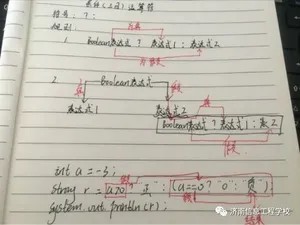 条件(三目)运算符
符号: ? :
规则:
真
1. Boolean表达式 ? 表达式1 : 表达式2
2. Boolean表达式
表达式1 表达式2
Boolean表达式 ? 表达式1 : 表2
int a = -5;
String r = a>0 ? "正" : (a==0 ? "0" : "负")
System.out.println(r);
结果
济南信息工程学校